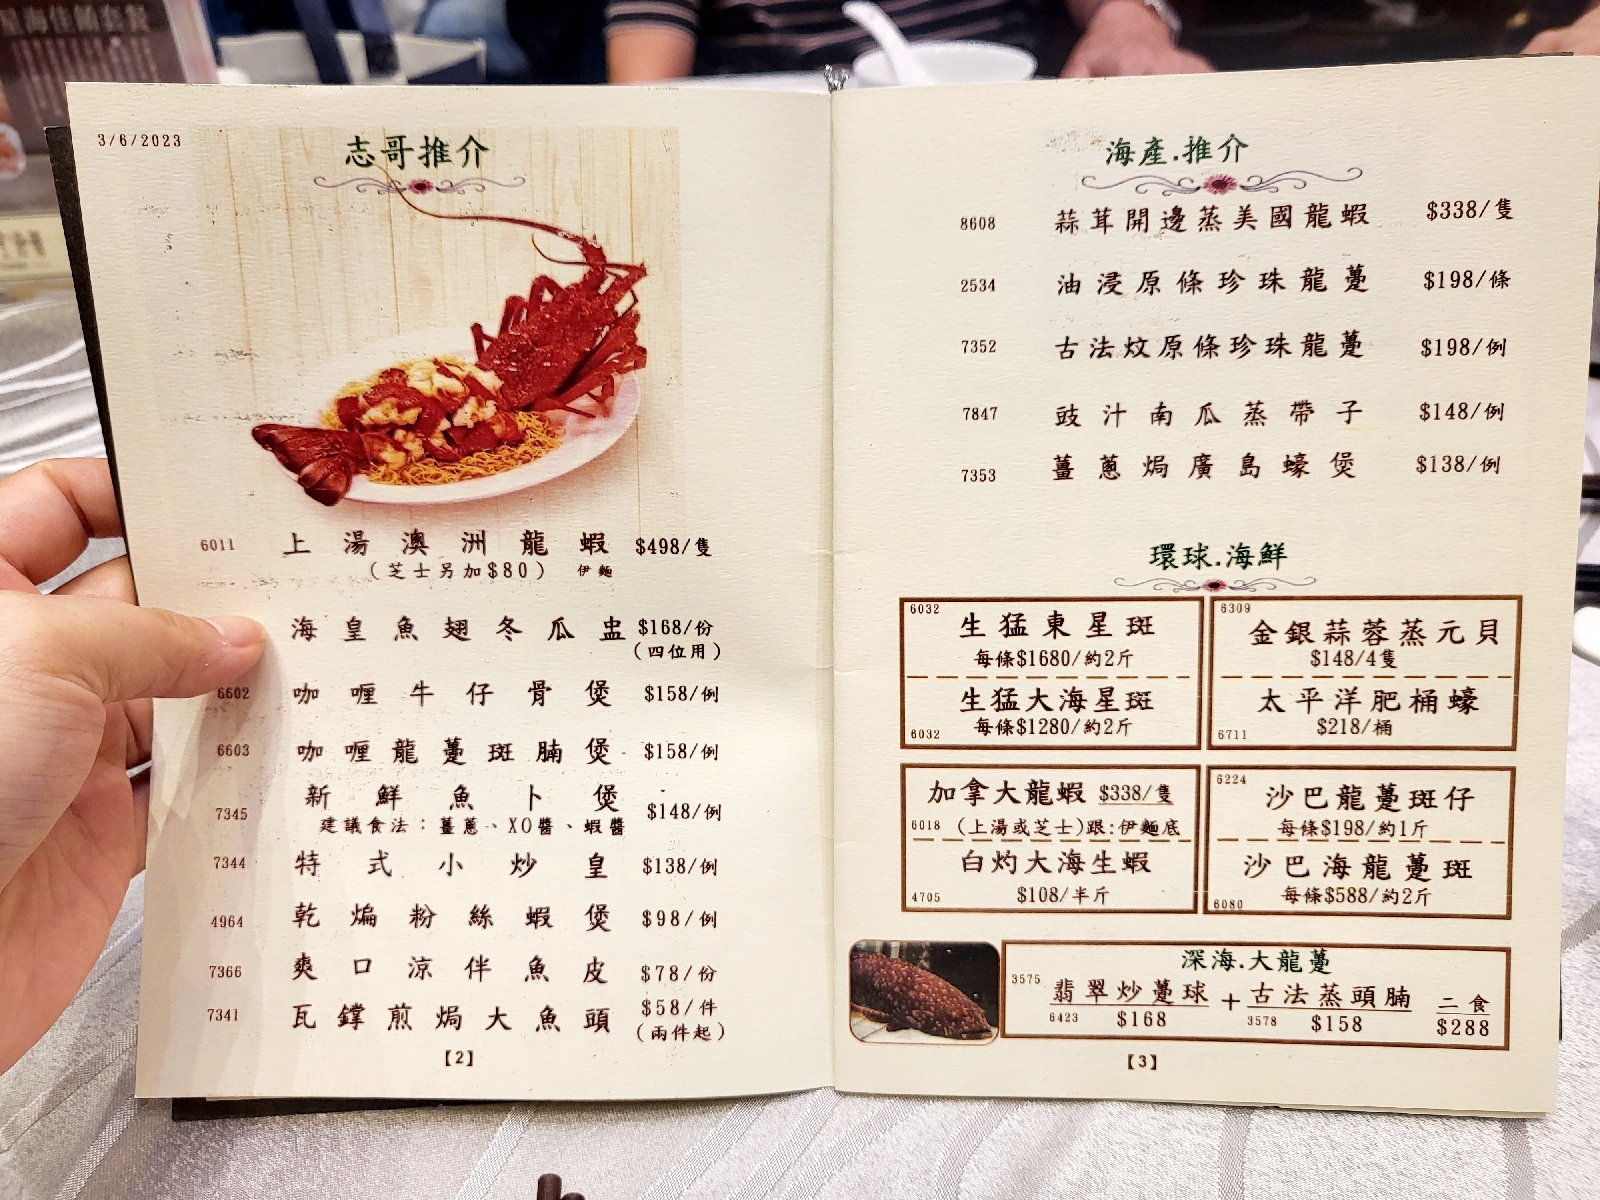 3/6/2023
志哥推介
6011 上湯澳洲龍蝦 $498/隻
(芝士另加$80) 伊麵
海皇魚翅冬瓜盅 $168/份
(四位用)
6602 咖喱牛仔骨煲 $158/例
6603 咖喱龍躉斑腩煲 $158/例
7345 新鮮魚卜煲 $148/例
建議食法：薑蔥、XO醬、蝦醬
7344 特式小炒皇 $138/例
4964 乾煸粉絲蝦煲 $98/例
7366 爽口涼伴魚皮 $78/份
7341 瓦鐣煎焗大魚頭 $58/件
(兩件起)
【2】
海產.推介
8608 蒜茸開邊蒸美國龍蝦 $338/隻
2534 油浸原條珍珠龍躉 $198/條
7352 古法炆原條珍珠龍躉 $198/例
7847 豉汁南瓜蒸帶子 $148/例
7353 薑蔥焗廣島蠔煲 $138/例
環球.海鮮
6032 生猛東星斑
每條$1680/約2斤
生猛大海星斑
6032 每條$1280/約2斤
6309 金銀蒜蓉蒸元貝
$148/4隻
太平洋肥桶蠔
6711 $218/桶
加拿大龍蝦 $338/隻
6018 (上湯或芝士)跟:伊麵底
白灼大海生蝦
4705 $108/半斤
6224 沙巴龍躉斑仔
每條$198/約1斤
沙巴海龍躉斑
6080 每條$588/約2斤
深海.大龍躉
3575 翡翠炒躉球+古法蒸頭腩 二食
6423 $168 3578 $158 $288
【3】